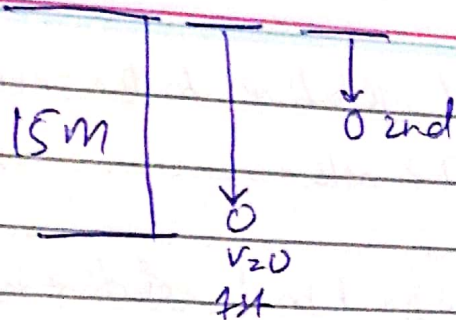 15m
0 2nd
0
v=0
1st